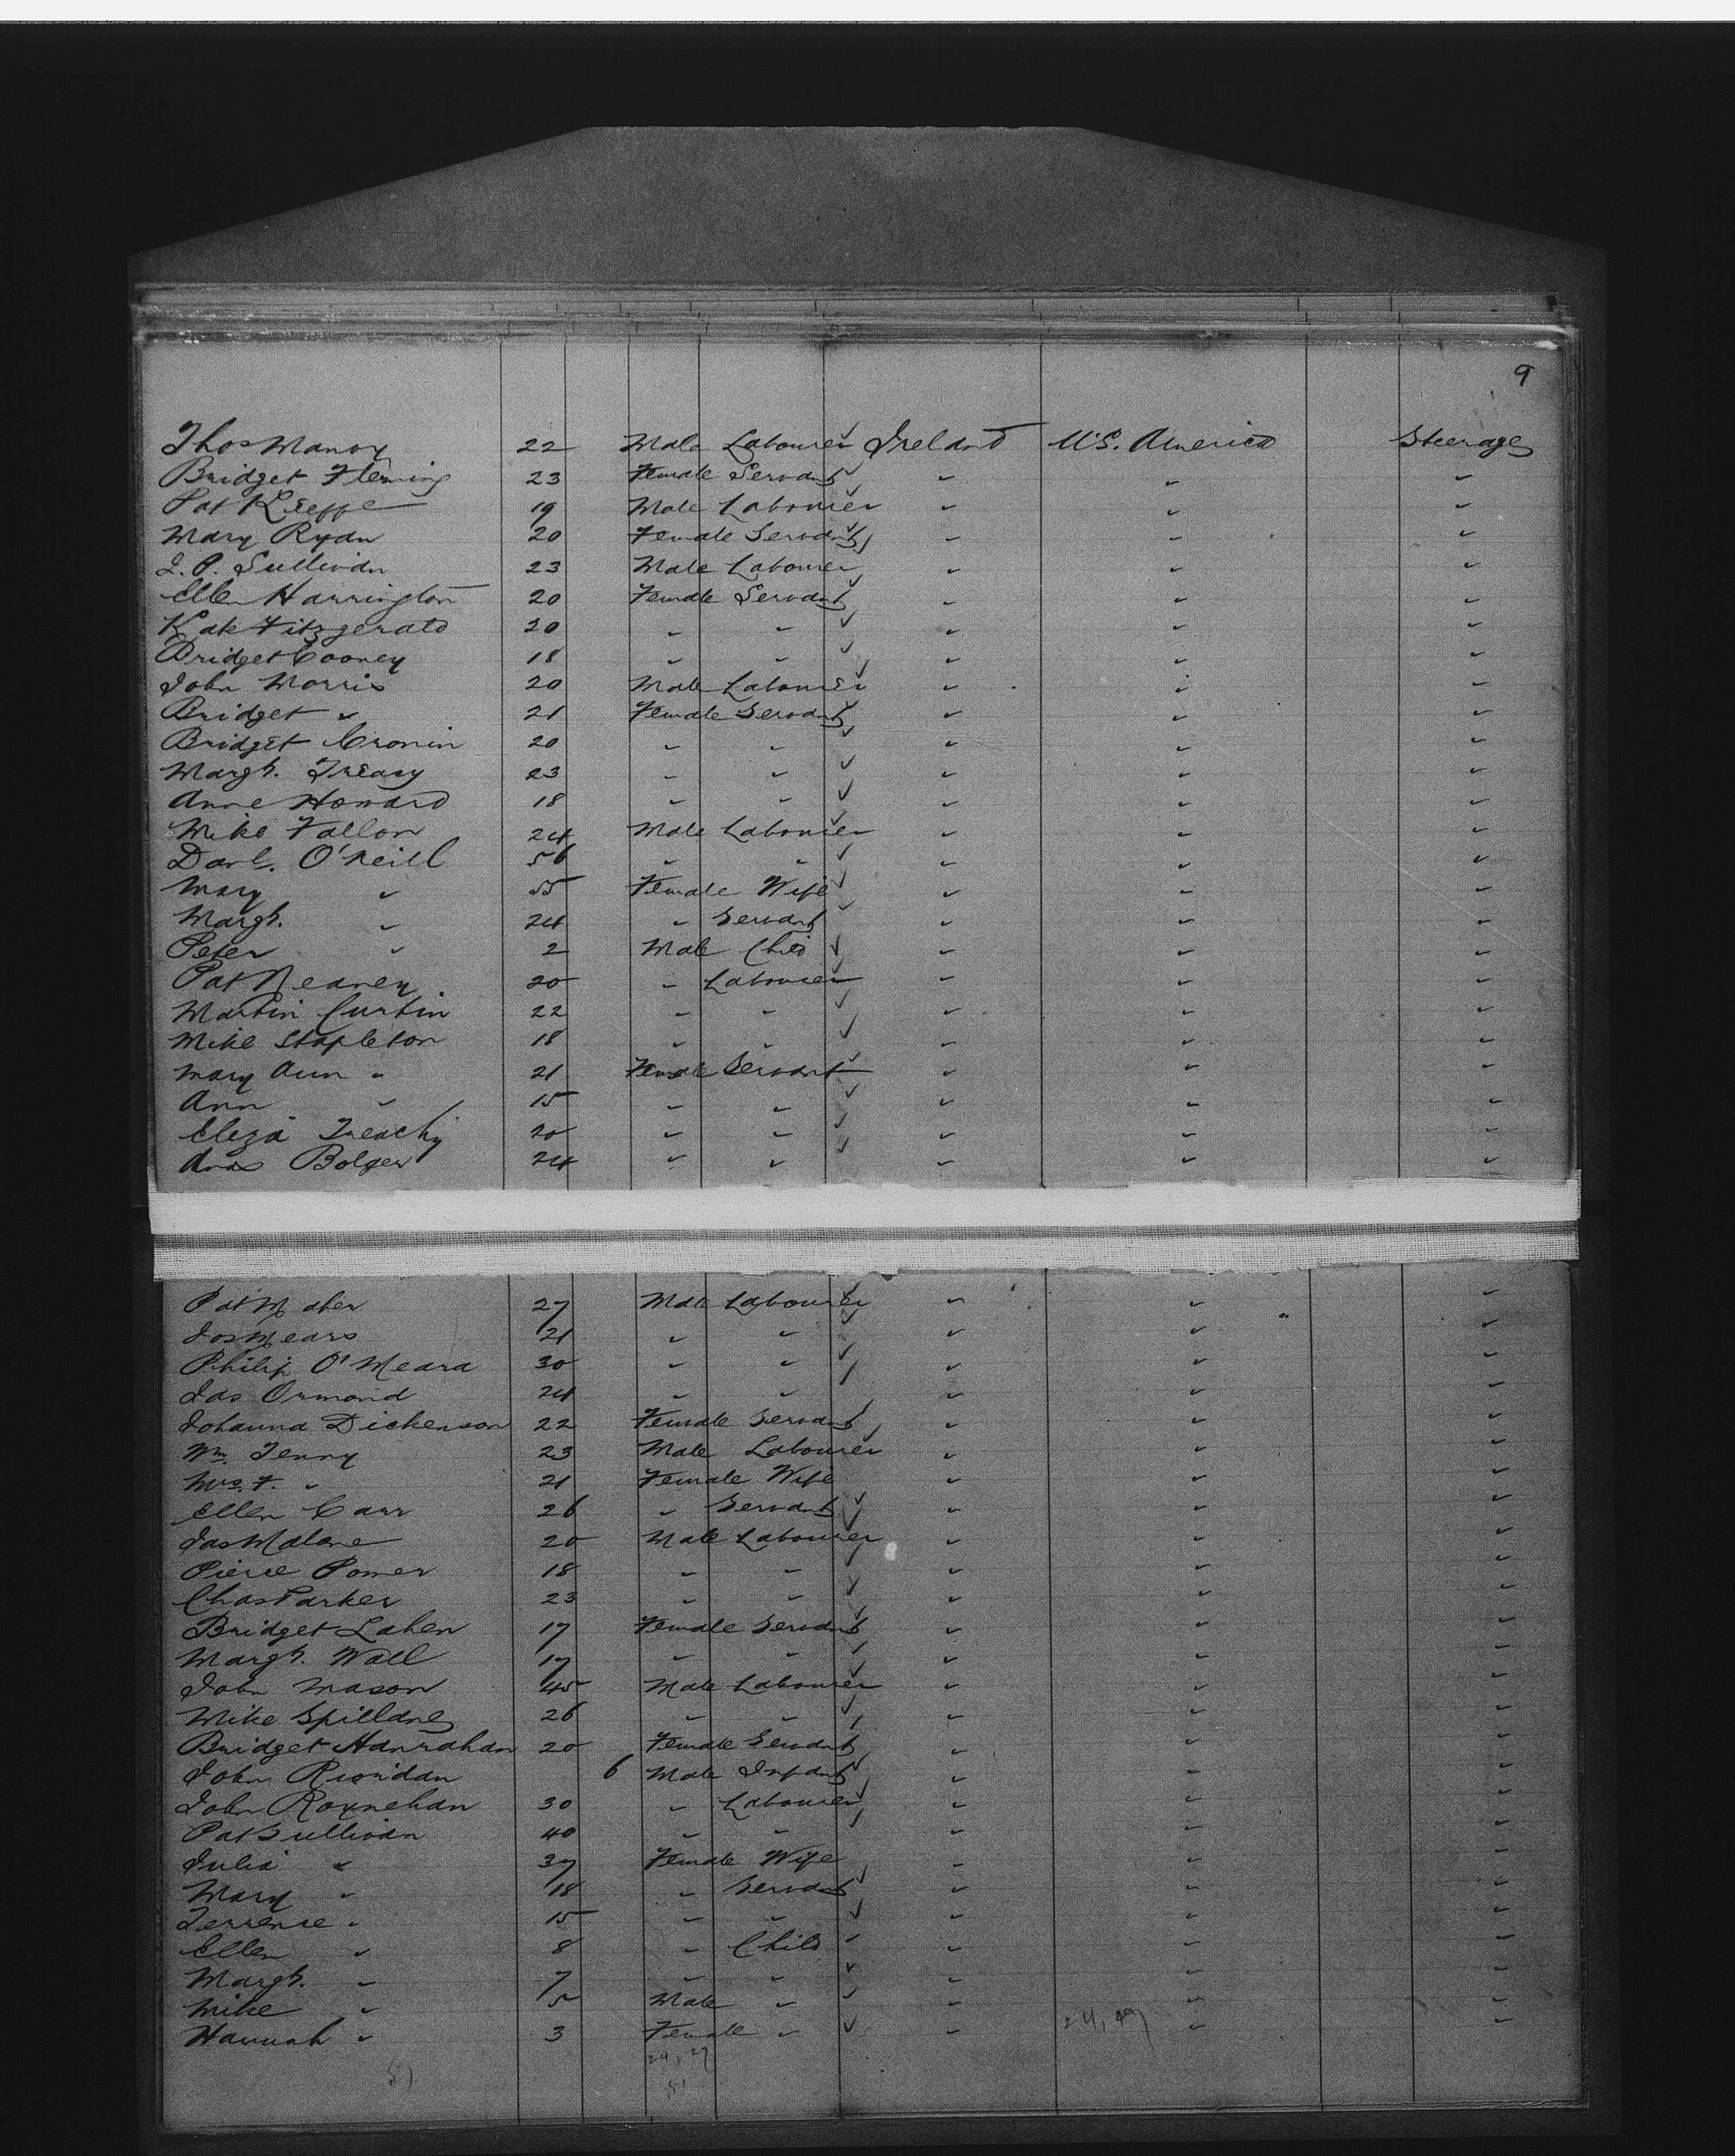 9
Thos Manoy 22 Male Labourer Ireland U.S. America Steerage
Bridget Fleming 23 Female Servant " " "
Pat Keeffe 19 Male Labourer " " "
Mary Ryan 20 Female Servant " " "
J. P. Sullivan 23 Male Labourer " " "
Ellen Harrington 20 Female Servant " " "
Kate Fitzgerald 20 " " " " "
Bridget Cooney 18 " " " " "
John Morris 20 Male Labourer " " "
Bridget " 21 Female Servant " " "
Bridget Cronin 20 " " " " "
Margt. Treacy 23 " " " " "
Anne Howard 18 " " " " "
Mike Fallon 24 Male Labourer " " "
Danl. O'Neill 56 " " " " "
Mary " 55 Female Wife " " "
Margt. " 24 " Servant " " "
Peter " 2 Male Child " " "
Pat Neaney 20 " Labourer " " "
Martin Curtin 22 " " " " "
Mike Stapleton 18 " " " " "
Mary Ann " 21 Female Servant " " "
Ann " 15 " " " " "
Eliza Treachy 20 " " " " "
Bolger 24 " " " " "
Pat Maher 27 Male Labourer " " "
Jos Mears 21 " " " " "
Philip O'Meara 30 " " " " "
Jas Ormond 24 " " " " "
Johanna Dickenson 22 Female Servant " " "
Wm. Tenny 23 Male Labourer " " "
Mrs. F. " 21 Female Wife " " "
Ellen Carr 26 " Servant " " "
Jas Malone 20 Male Labourer " " "
Pierce Power 18 " " " " "
Chas Parker 23 " " " " "
Bridget Lahen 17 Female Servant " " "
Margt. Wall 17 " " " " "
John Mason 45 Male Labourer " " "
Mike Spillane 26 " " " " "
Bridget Hanrahan 20 Female Servant " " "
John Riordan 6 Male Infant " " "
John 30 " Labourer " " "
Pat Sullivan 40 " " " " "
Julia " 37 Female Wife " " "
Mary " 18 " Servant " " "
Terrence " 15 " " " " "
Ellen " 8 " Child " " "
Margt. " 7 " " " " "
Mike " 5 Male " " " "
Hannah " 3 Female " " 24, 27 " "
24, 27
51 51